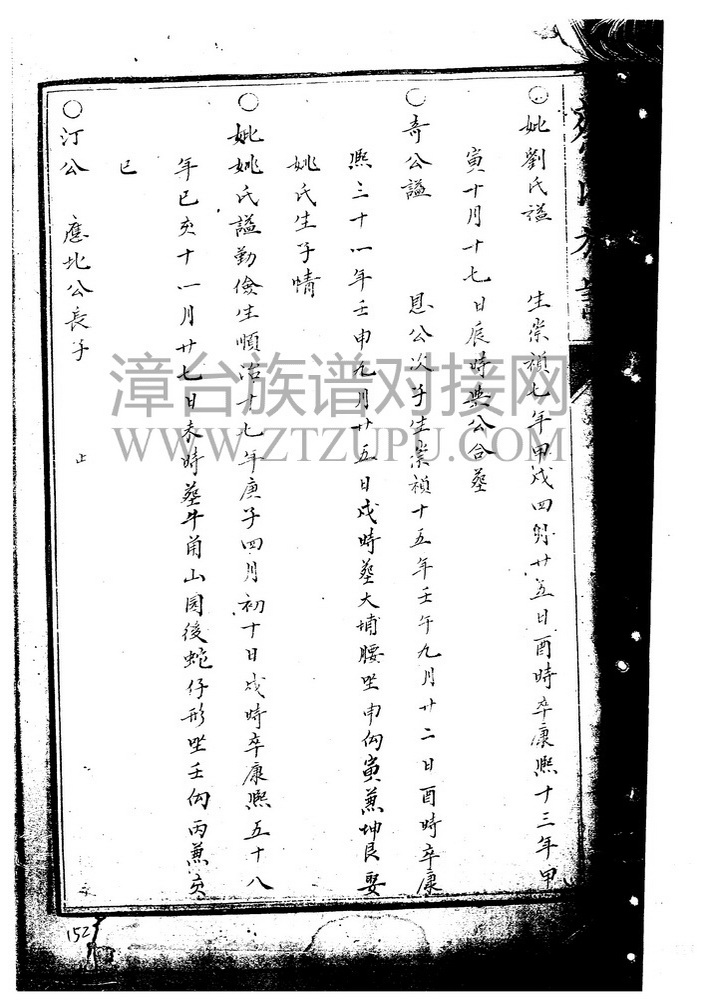 ○妣劉氏謚 生崇禎七年甲戌四月廿五日酉時卒康熙十三年甲
寅十月十七日辰時與公合墓
○奇公謚 恩公次子生崇禎十五年壬午九月廿二日酉時卒康
熙三十一年壬申九月廿五日戌時墓大埔腰坐申向寅兼坤艮娶
姚氏生子情
○妣姚氏謚勤儉生順治十九年庚子四月初十日戌時卒康熙五十八
年己亥十一月廿七日未時墓牛角山园後蛇仔形坐壬向丙兼亥
巳
○汀公 應北公長子 止
漳台族谱对接网
WWW.ZTZUPU.COM
152